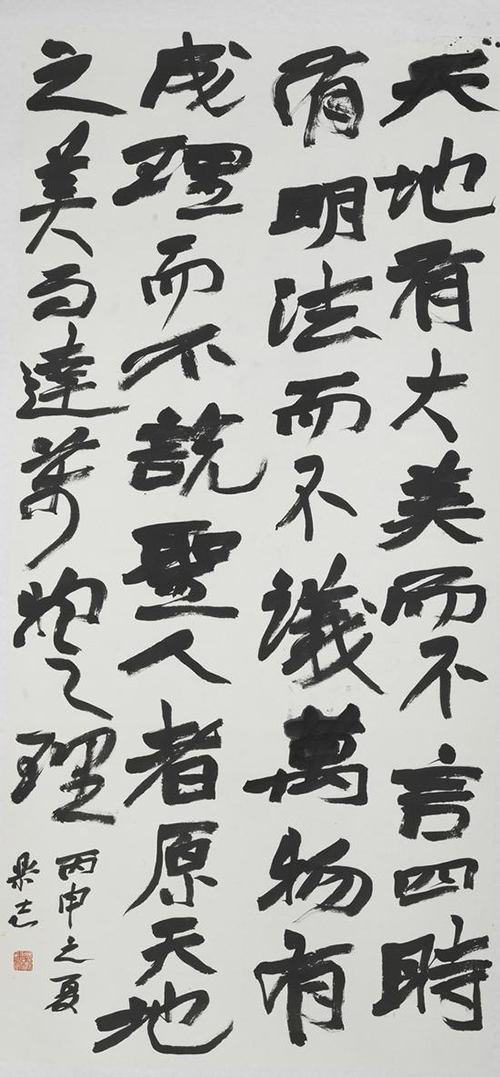 天地有大美而不言四時
有明法而不議萬物有
成理而不説聖人者原天地
之美而達萬物之理
丙申之夏
樂志